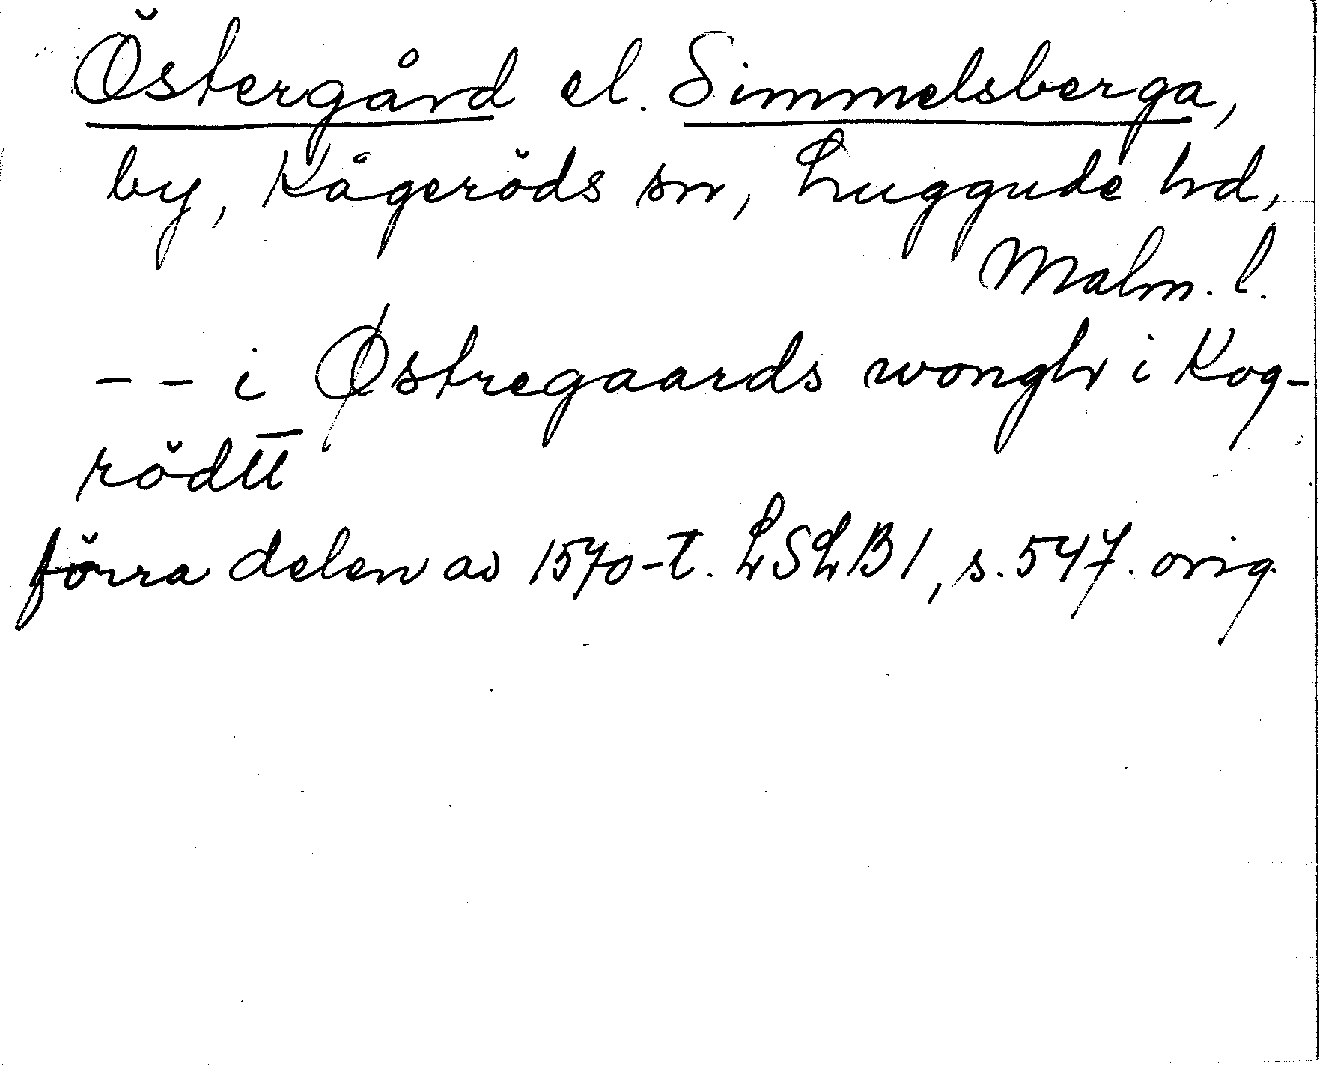 Östergård el. Simmelsberga,
by, Kågeröds sn, Luggude hd,
Malm. l.
-- i Østregaards wongh i Kog-
rödtt
förra delen av 1570-t. LSLB1, s. 547. orig